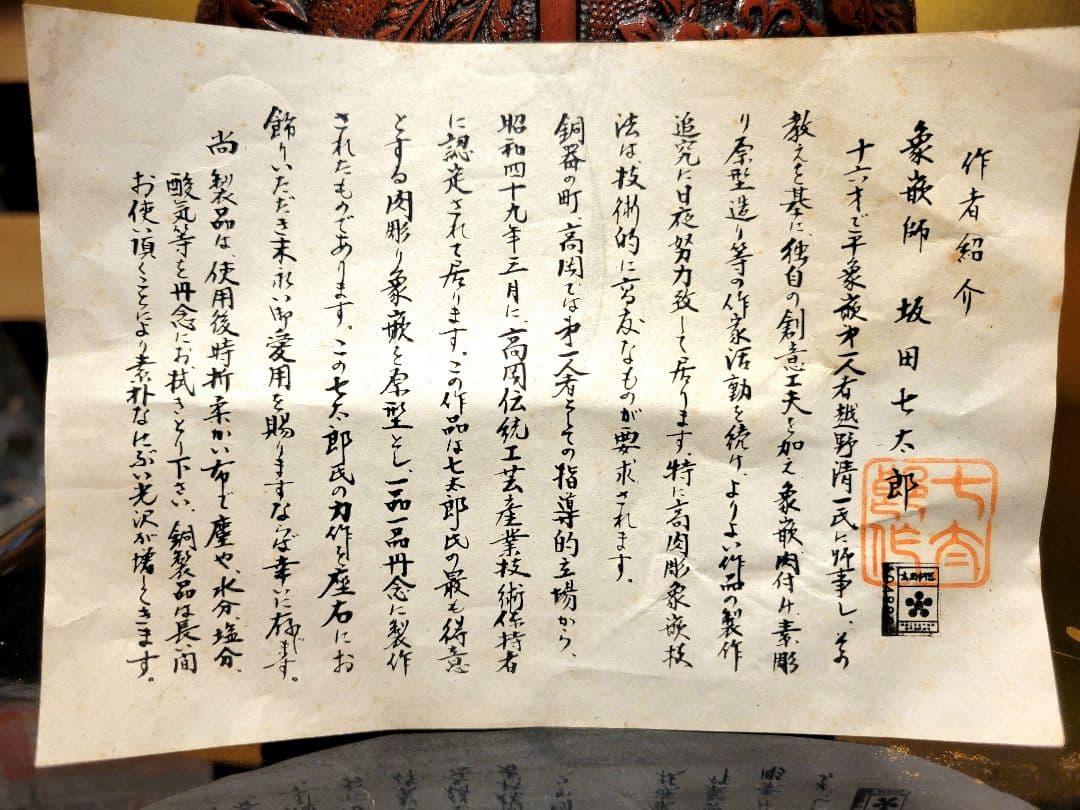 作者紹介
象嵌師 坂田七太郎
十六才で平象嵌才一人者越野清一氏に师事し、その
教えを基に、独自の創意工夫を加え、象嵌、肉付け、素彫
り原型造り等の作家活動を続け、よりよい作品の製作
追究に日夜努力致して居ります。特に高肉彫象嵌技
法は、技術的に高度なものが要求されます。
銅器の町、高岡では才一人者としての指導的立場から、
昭和四十九年三月に、高岡伝統工芸産業技術保持者
に認定されて居ります。この作品は七太郎氏の最も得意
とする肉彫り象嵌を原型とし、一品一品丹念に製作
されたものであります。この七太郎氏の力作を座右にお
飾りいただき末永い御愛用を賜りますならば幸いに存じます。
尚 製品は、使用後時折柔かい布で塵や、水分、塩分、
酸気等を丹念にお拭きとり下さい。銅製品は長い間
お使い頂くことにより素朴なにぶい光沢が増してきます。
七太郎作